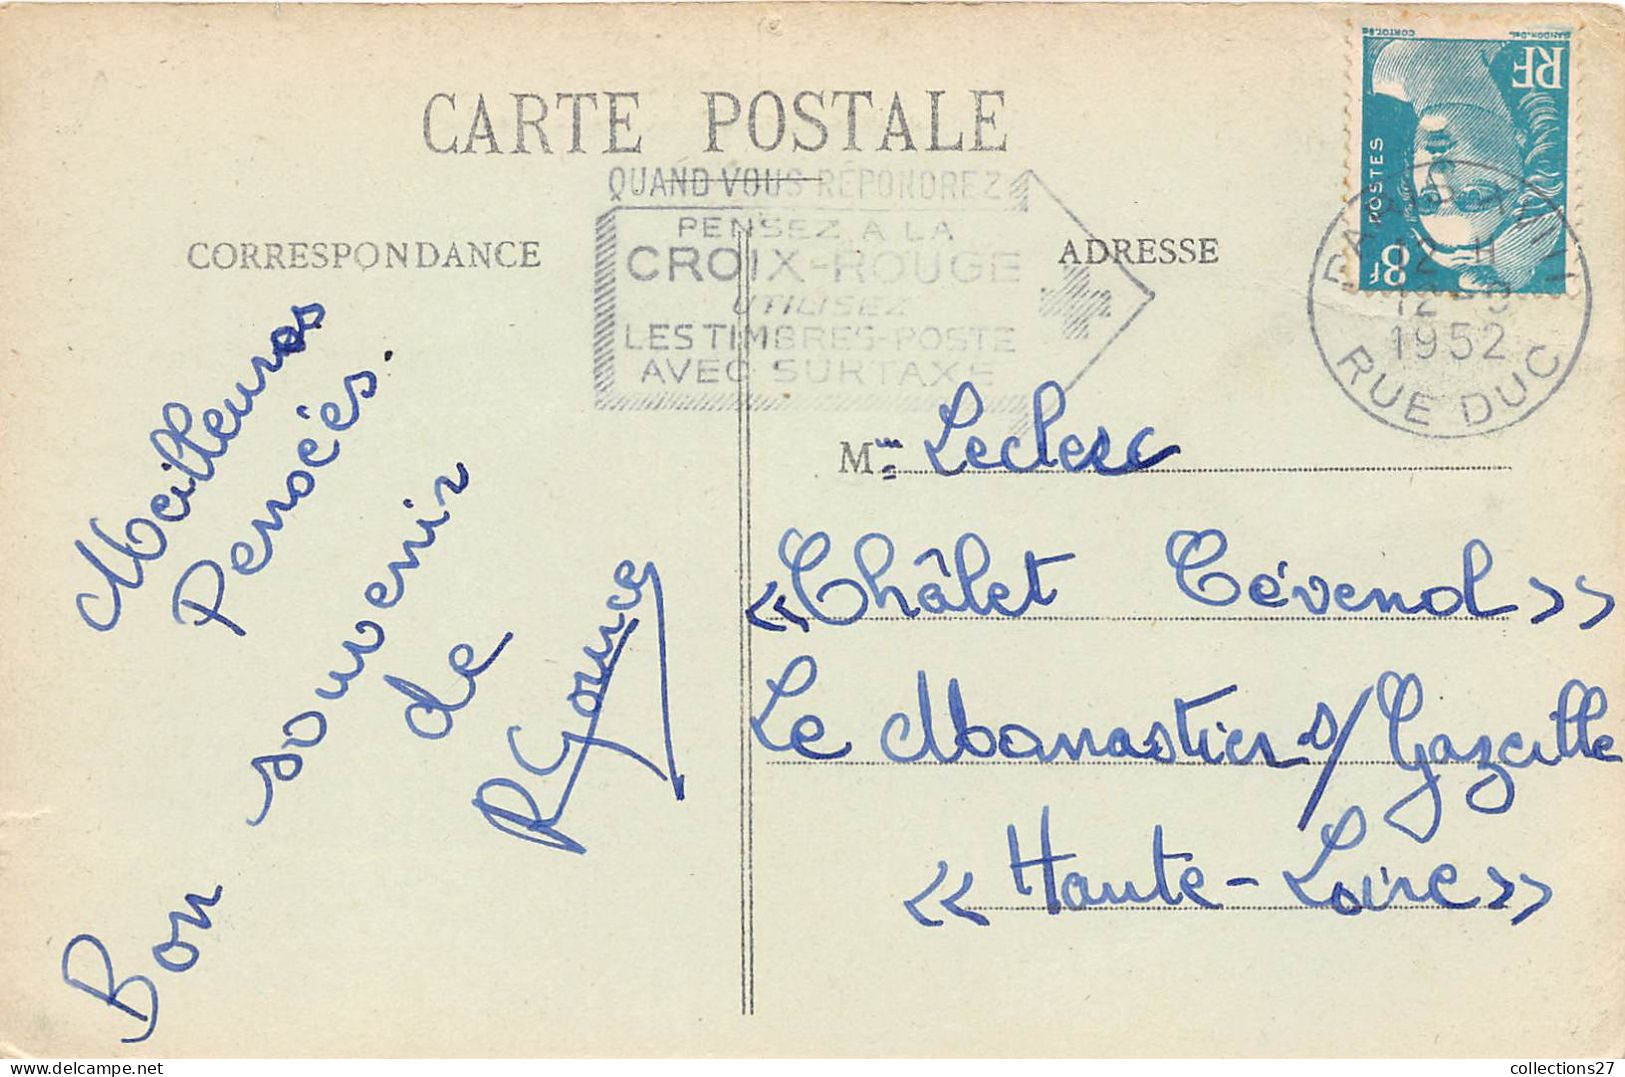 CARTE POSTALE
QUAND VOUS RÉPONDREZ
PENSEZ A LA
CROIX-ROUGE
UTILISEZ
LES TIMBRES-POSTE
AVEC SURTAXE
CORRESPONDANCE
ADRESSE
RF
POSTES
8F
GANDON.DEL
CORTOT.SC
12 - 9
1952
RUE DUC
Meilleures
Pensées.
Bon souvenir
de
Mme Leclerc
« Châlet Cévenol »
Le Monastier s/ Gazeille
« Haute-Loire »
collections27